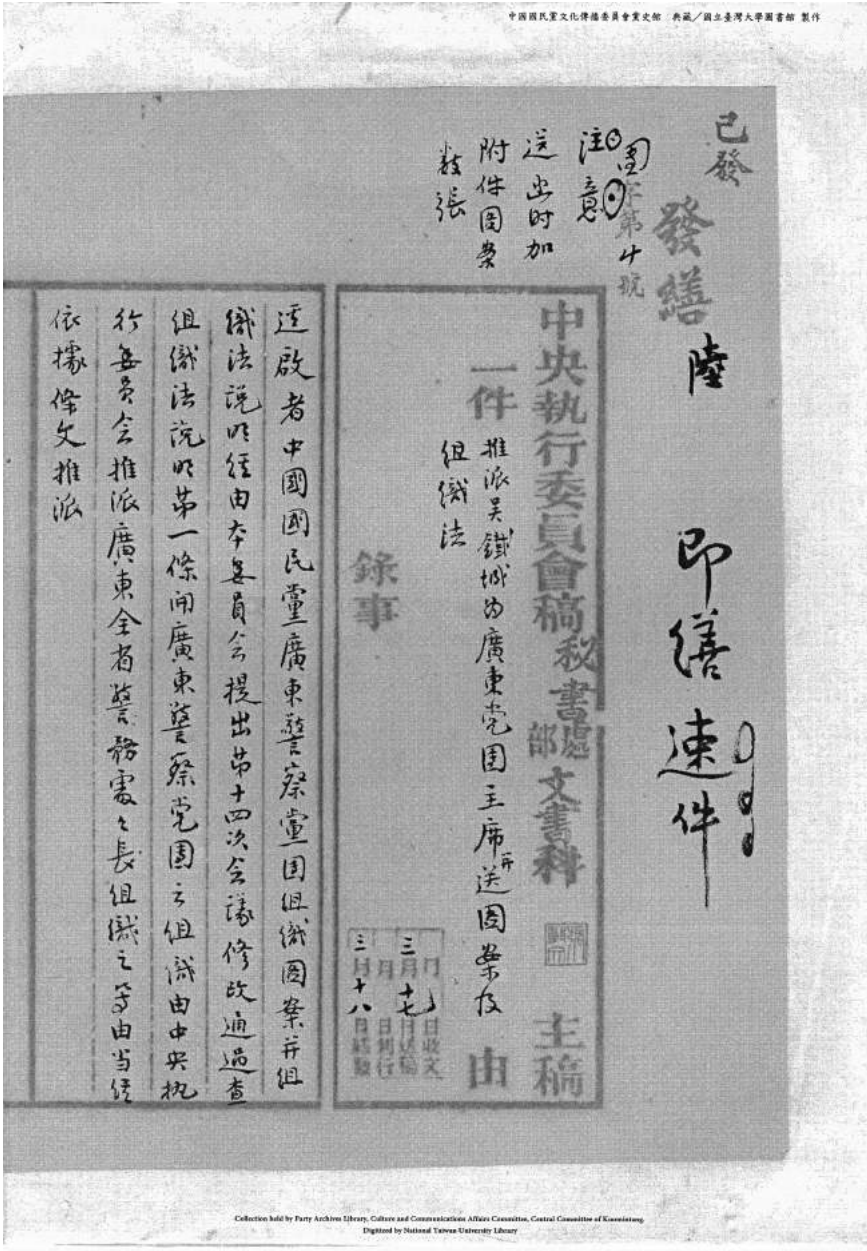 中國國民黨文化傳播委員會黨史館 典藏／國立臺灣大學圖書館 製作
已發
發繕 陸 即繕速件
團字第廿號
注意
送出时加
附件圖案
数張
中央執行委員會稿 秘書處部 文書科 主稿
一件 推派吴鐵城为廣東党团主席并送圖案及
組織法 由
錄事
月 日收文
三月十七日送稿
月 日判行
三月十八日繕發
逕啟者中國國民黨廣東警察黨团組織圖案并組
織法説明経由本委員会提出苐十四次会議修改通過查
組織法説明苐一條開廣東警察党團之組織由中央执
行委員会推派廣東全省警務處々長組織之等由当経
依據條文推派
Collection held by Party Archives Library, Culture and Communications Affairs Committee, Central Committee of Kuomintang.
Digitized by National Taiwan University Library